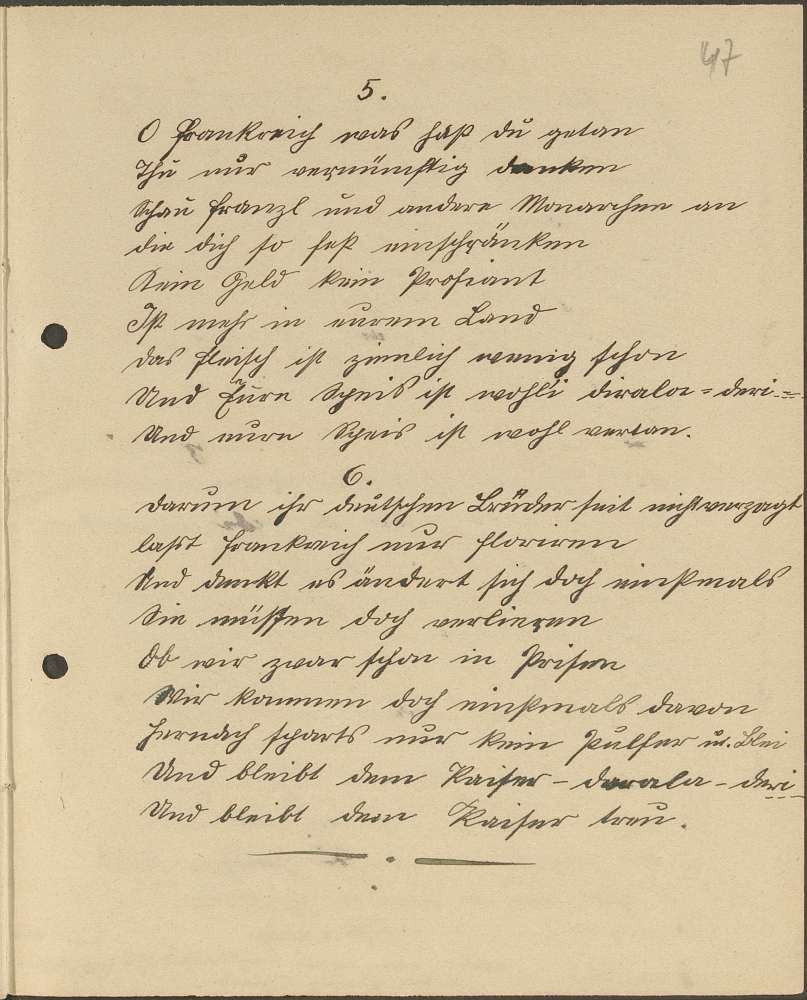 47
5.
O Frankreich was hast du getan
Thu nur vernünftig denken
Schau Franzl und andere Monarchen an
die dich so fest einschränken
Kein Geld kein Profiant
Ist mehr in eurem Land
das Fleisch ist ziemlich wenig schon
Und Eure Speis ist wohl dirala = deri - =
Und eure Speis ist wohl vertan.
6.
darum ihr deutschen Brüder seit nicht verzagt
lasst Frankreich nur floriren
Und denkt es ändert sich doch einstmals
Sie müssen doch verlieren
Ob wir zwar schon in Prison
Wir kommen doch einstmals davon
hernach sparts nur kein Pulfer u. Blei
Und bleibt dem Kaiser - darala - deri
Und bleibt dem Kaiser treu.